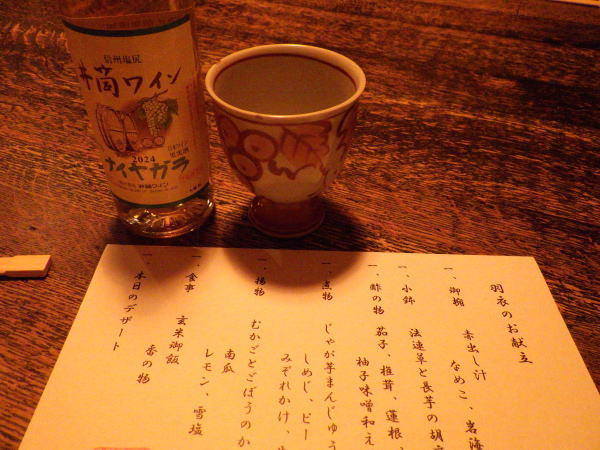 信州塩尻
井筒ワイン
2024
ナイヤガラ
井筒ワイン
羽衣のお献立
一、御椀 赤出し汁
なめこ、岩海
一、小鉢 法連草と長芋の胡
一、酢の物 茄子、椎茸、蓮根、
柚子味噌和え
一、煮物 じゃが芋まんじゅう
しめじ、ピー
みぞれかけ、
一、揚物 むかごとごぼうのか
南瓜
レモン、雪塩
一、食事 玄米御飯
香の物
一、本日のデザート